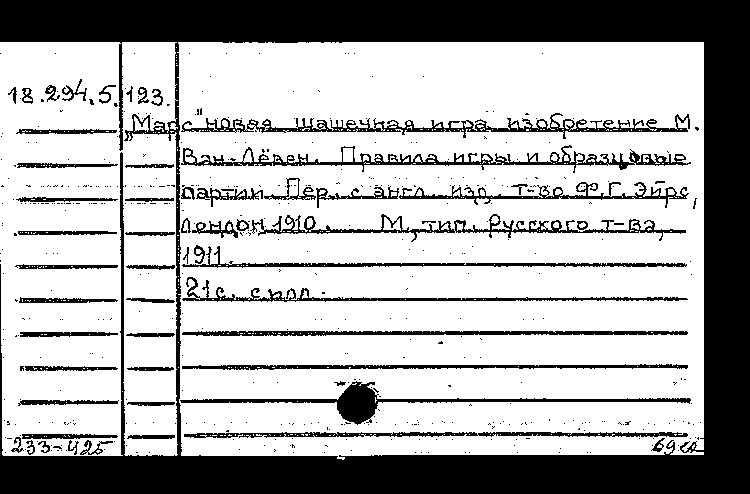 18.294.5. 123.
„Марс" новая шашечная игра изобретение М.
Ван-Лёвен. Правила игры и образцовые
партии. Пер. с англ. изд. т-во Ф.Г. Эйрс,
Лондон 1910. М, тип. Русского т-ва,
1911.
21с. с илл.
233-425